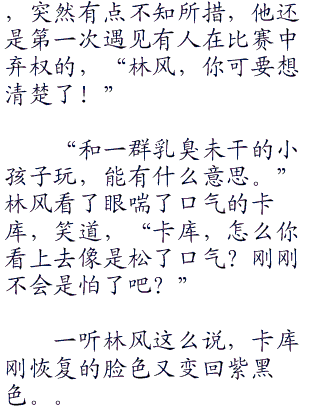 ，突然有点不知所措，他还
是第一次遇见有人在比赛中
弃权的，“林风，你可要想
清楚了！”
“和一群乳臭未干的小
孩子玩，能有什么意思。”
林风看了眼喘了口气的卡
库，笑道，“卡库，怎么你
看上去像是松了口气？刚刚
不会是怕了吧？”
一听林风这么说，卡库
刚恢复的脸色又变回紫黑
色。。